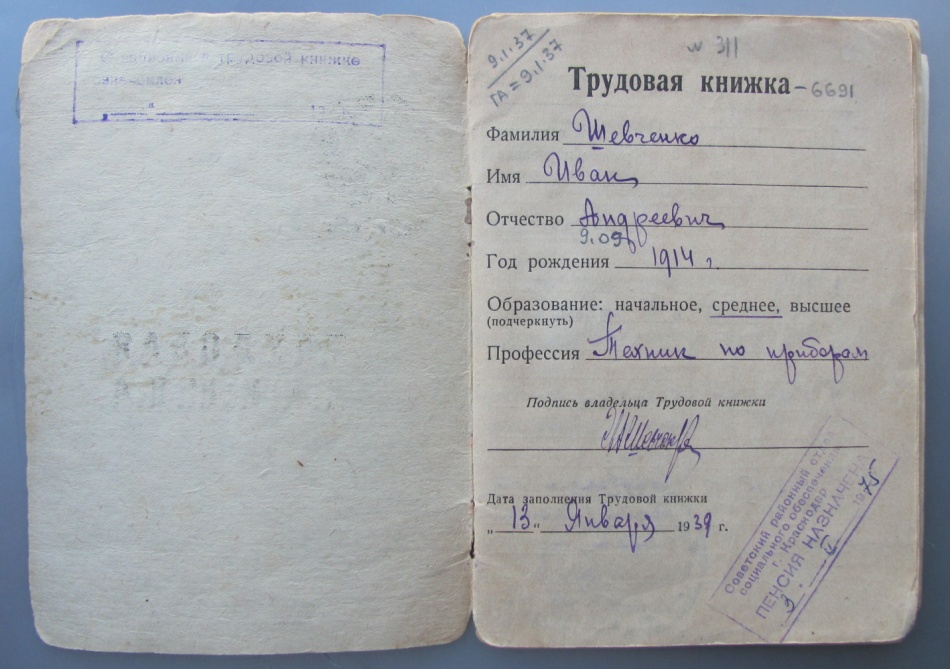 трудовой книжке
9.1.37
ГА = 9.1.37
N 311
Трудовая книжка - 6691
Фамилия Шевченко
Имя Иван
Отчество Андреевич
9.09
Год рождения 1914 г.
Образование: начальное, среднее, высшее
(подчеркнуть)
Профессия Техник по приборам
Подпись владельца Трудовой книжки
Дата заполнения Трудовой книжки
„ 13 " Января 1939 г.
Советский районный отдел
социального обеспечения
г. Краснодар
ПЕНСИЯ НАЗНАЧЕНА
3. II 1975